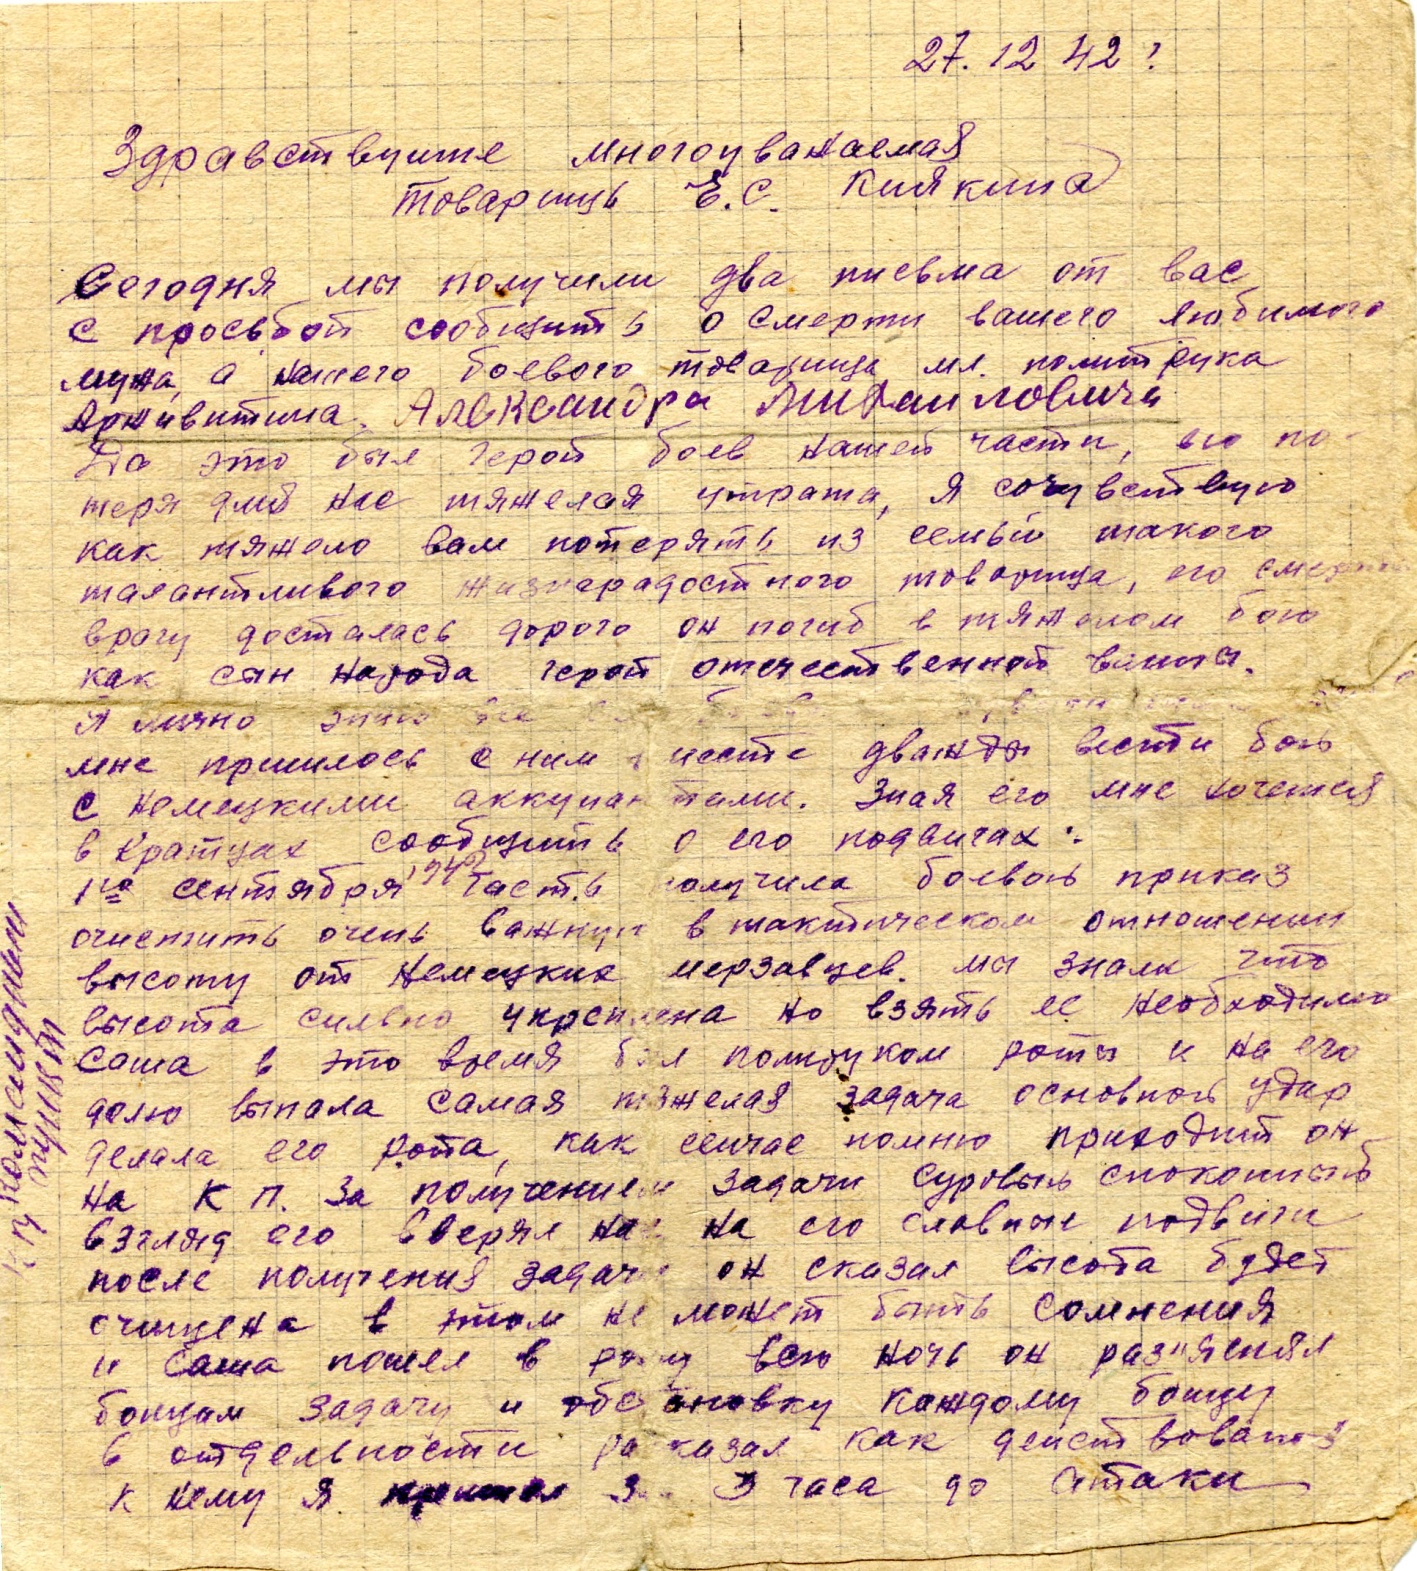 27. 12 42 г.
Здравствуите многоуважаемая
товарищь Е. С. Кийкина
Сегодня мы получили два письма от вас
с просьбой сообщить о смерти вашего любимого
мужа, а нашего боевого товарища мл. политрука
Александра Михаиловича
Да это был герой боев нашей части, его по-
теря для нас тяжелая утрата, я сочувствую
как тяжело вам потерять из семьи такого
талантливого жизнерадостного товарища, его смерть
врагу досталась дорого он погиб в тяжолом бою
как сын народа герой отечественной воины.
Я лично
мне пришлось с ним вместе дважды вести бои
с немецкими аккупантами. Зная его мне хочется
в кратцах сообщить о его подвигах:
1го сентября 1942 часть получила боевой приказ
очистить очень важную в тактическом отношении
высоту от немецких мерзавцев. мы знали что
высота сильно укреплена но взять ее необходимо
Саша в это время был политруком роты и на его
долю выпала самая тяжелая задача основной удар
делала его рота, как сеичас помню приходит он
на К П. за получением задачи суровый спокойный
взгляд его вверял нас на его славные подвиги
после получения задачи он сказал высота будет
очищена в этом не может быть сомнения
и Саша пошел в роту всю ночь он раз"яснял
боицам задачу и обстановку каждому боицу
в отдельности рассказал как деиствовать
к нему я пришел за 3 часа до атаки
командный
пункт